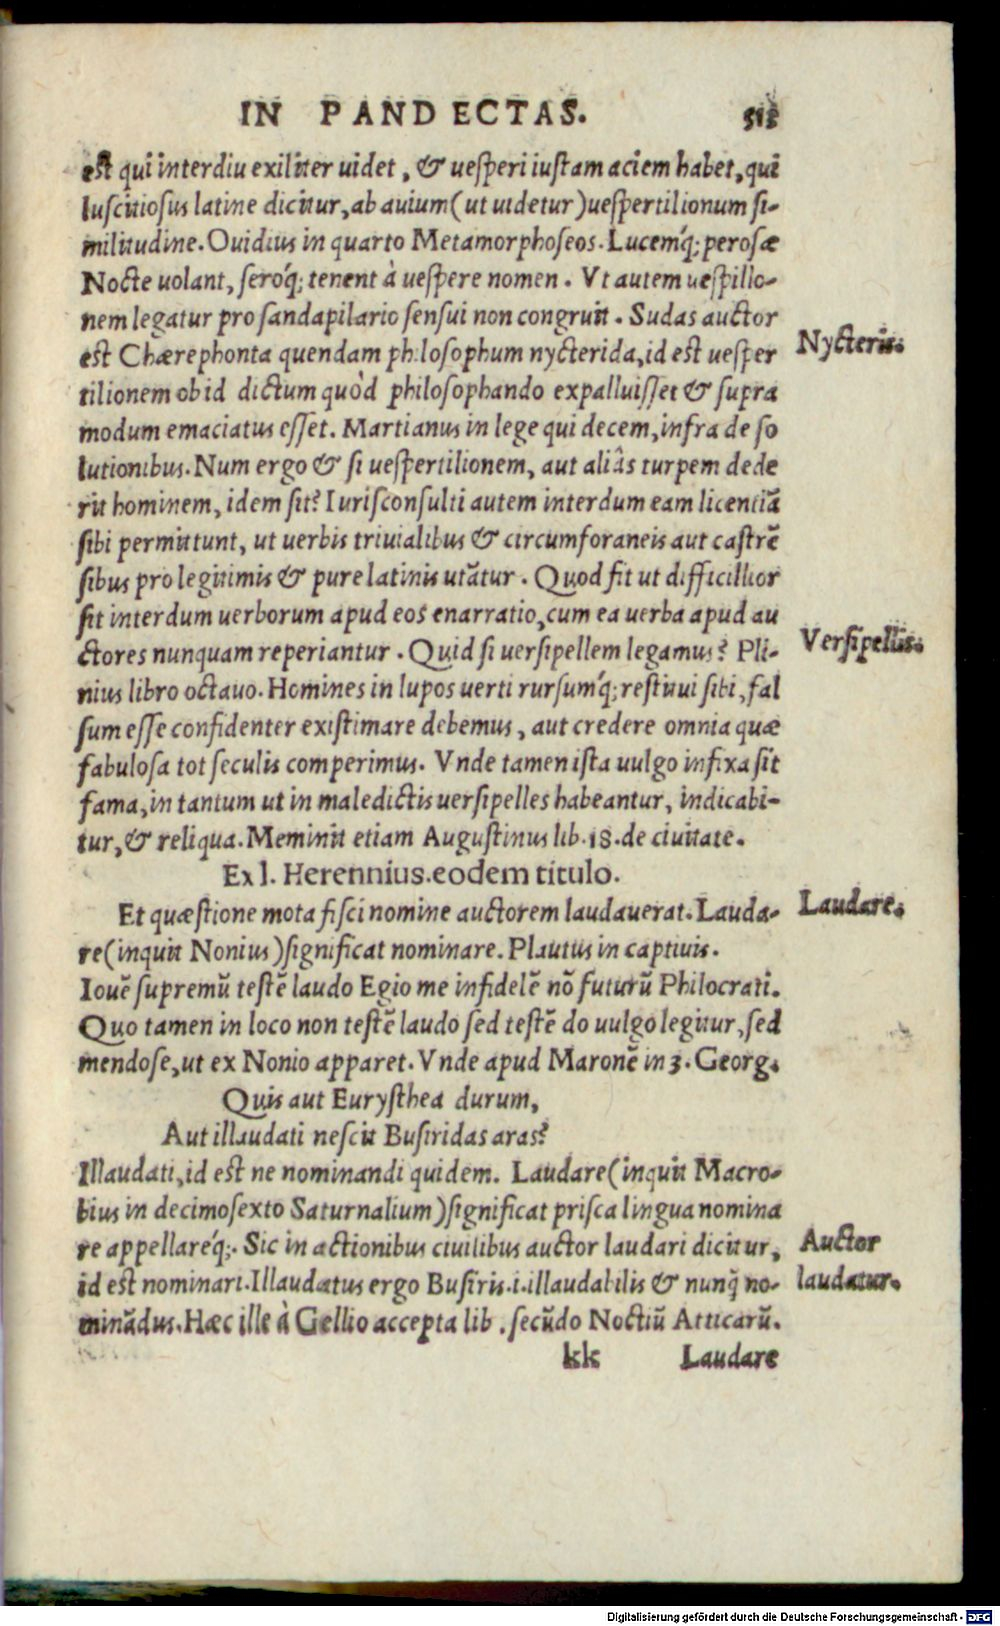 IN PANDECTAS. 513
est qui interdiu exiliter uidet, & uesperi iustam aciem habet, qui
luscitiosus latine dicitur, ab auium (ut uidetur) uespertilionum si-
militudine. Ouidius in quarto Metamorphoseos. Lucemq́; perosæ
Nocte uolant, seroq́; tenent à uespere nomen. Vt autem uespillo-
nem legatur pro sandapilario sensui non congruit. Sudas auctor
Nycteris.
est Chærephonta quendam philosophum nycterida, id est uesper
tilionem ob id dictum quòd philosophando expalluisset & supra
modum emaciatus esset. Martianus in lege qui decem, infra de so
lutionibus. Num ergo & si uespertilionem, aut aliâs turpem dede
rit hominem, idem sit? Iurisconsulti autem interdum eam licentiā
sibi permittunt, ut uerbis triuialibus & circumforaneis aut castrē
sibus pro legitimis & pure latinis utātur. Quod fit ut difficillior
sit interdum uerborum apud eos enarratio, cum ea uerba apud au
Versipellis.
ctores nunquam reperiantur. Quid si uersipellem legamus? Pli-
nius libro octauo. Homines in lupos uerti rursumq́; restitui sibi, fal
sum esse confidenter existimare debemus, aut credere omnia quæ
fabulosa tot seculis comperimus. Vnde tamen ista uulgo infixa sit
fama, in tantum ut in maledictis uersipelles habeantur, indicabi-
tur, & reliqua. Meminit etiam Augustinus lib. 18. de ciuitate.
Ex l. Herennius. eodem titulo.
Et quæstione mota fisci nomine auctorem laudauerat. Lauda-
Laudare.
re (inquit Nonius) significat nominare. Plautus in captiuis.
Iouē supremū testē laudo Egio me infidelē nō futurū Philocrati.
Quo tamen in loco non testē laudo sed testē do uulgo legitur, sed
mendose, ut ex Nonio apparet. Vnde apud Maronē in 3. Georg.
Quis aut Eurysthea durum,
Aut illaudati nescit Busiridas aras?
Illaudati, id est ne nominandi quidem. Laudare (inquit Macro-
bius in decimosexto Saturnalium) significat prisca lingua nomina
re appellareq́;. Sic in actionibus ciuilibus auctor laudari dicitur,
Auctor
id est nominari. Illaudatus ergo Busiris .i. illaudabilis & nunq̄ no-
laudatur.
minādus. Hæc ille à Gellio accepta lib. secūdo Noctiū Atticarū.
kk Laudare
Digitalisierung gefördert durch die Deutsche Forschungsgemeinschaft - DFG